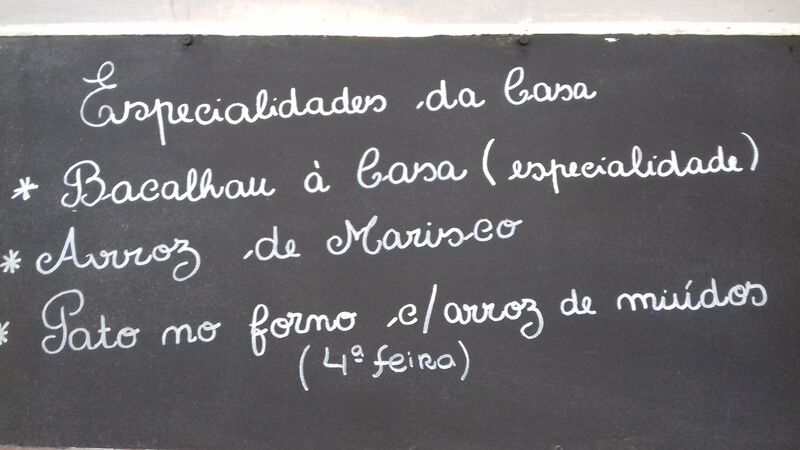 Especialidades da Casa
* Bacalhau à Casa (especialidade)
* Arroz de Marisco
* Pato no forno c/arroz de miúdos
(4ª feira)